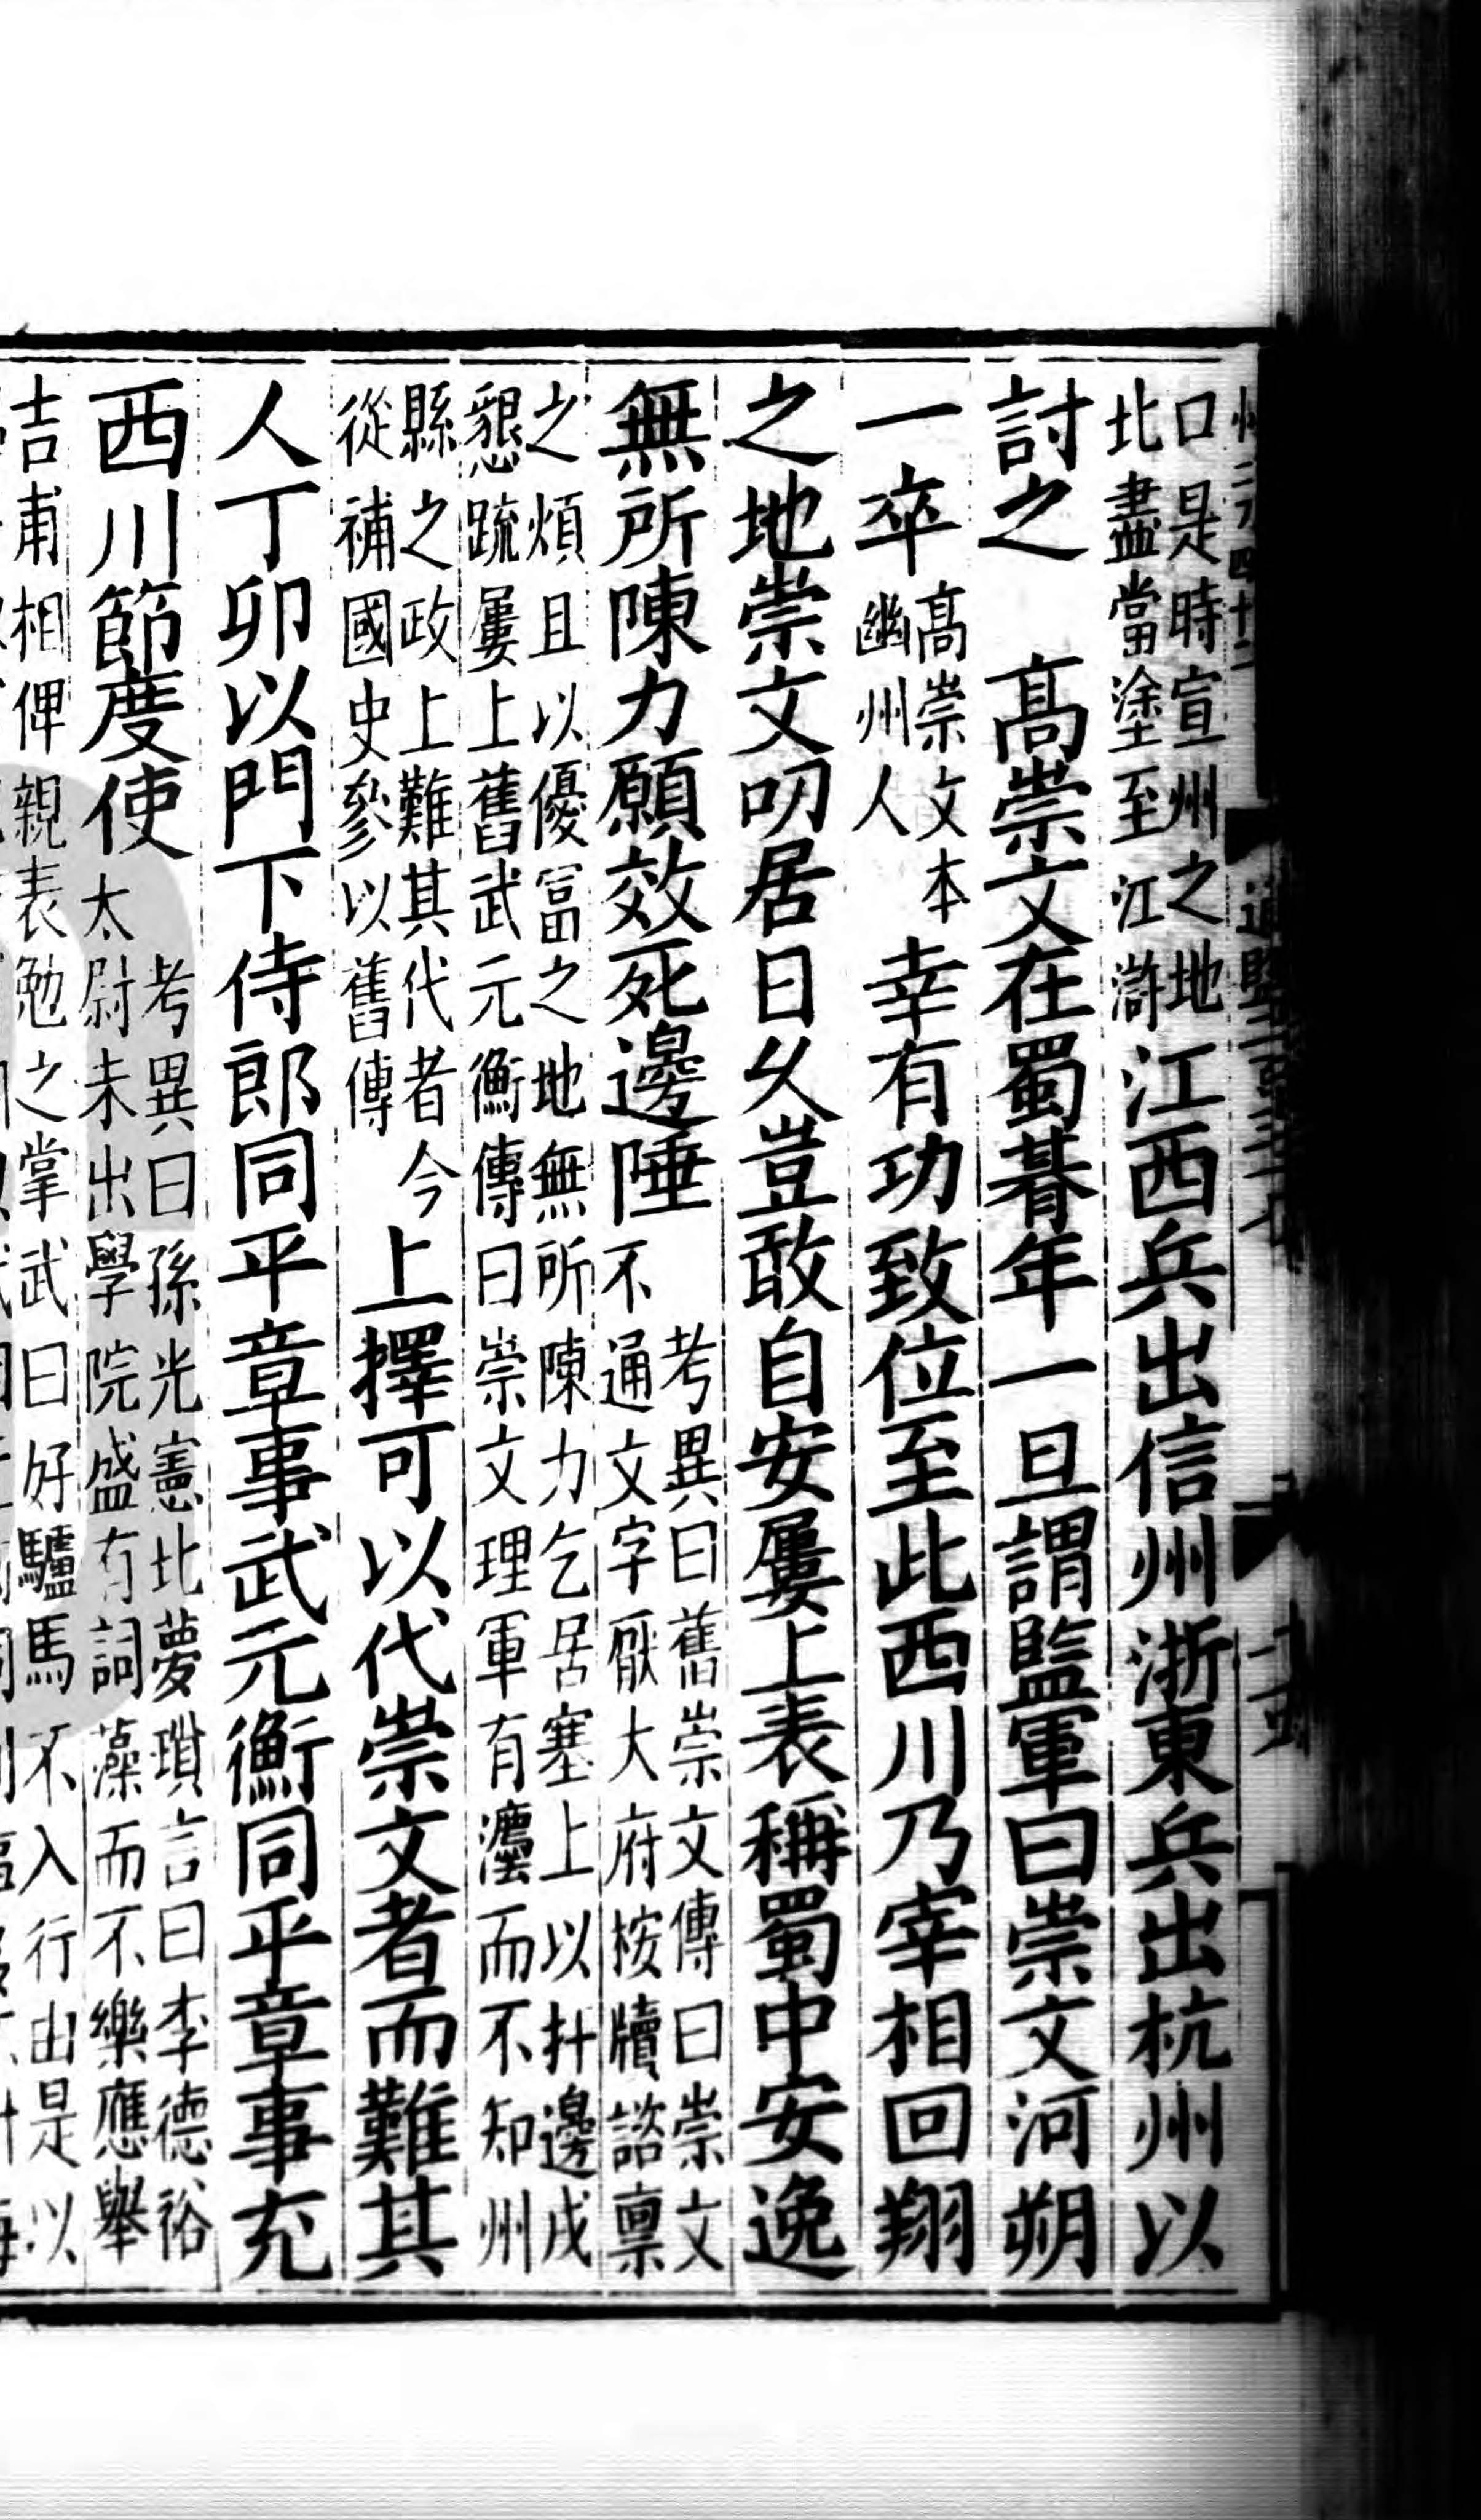 口是時宣州之地
北盡當塗至江滸
江西兵出信州浙東兵出杭州以
討之　髙崇文在蜀朞年一旦謂監軍曰崇文河朔
一卒
髙崇文本
幽州人
幸有功致位至此西川乃宰相回翔
之地崇文叨居日乆豈敢自安屢上表稱蜀中安逸
無所陳力願效死邊陲
考異曰舊崇文傳曰崇文
不通文字厭大府桉牘諮稟
之煩且以優富之地無所陳力乞居塞上以扞邊戍
懇疏屢上舊武元衡傳曰崇文理軍有灋而不知州
縣之政上難其代者今
從補國史參以舊傳
上擇可以代崇文者而難其
人丁卯以門下侍郎同平章事武元衡同平章事充
西川節度使
考異曰孫光憲北夢瑣言曰李德裕
太尉未出學院盛有詞藻而不樂應舉
吉甫相俾親表勉之掌武曰好驢馬不入行出是以